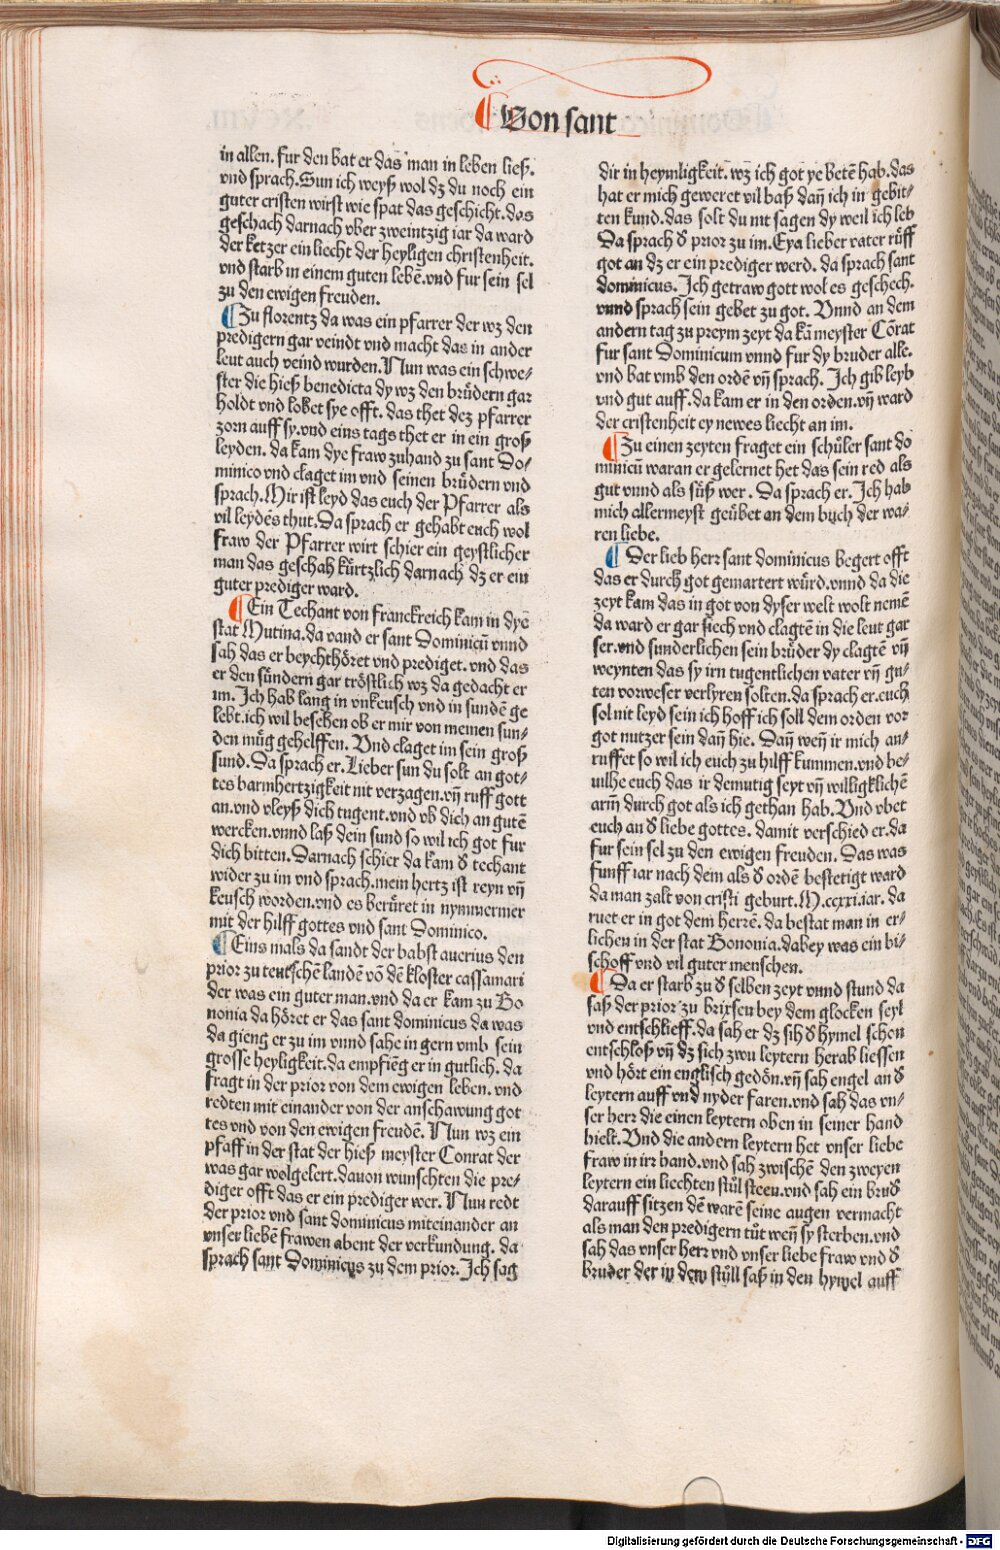 Von sant
in allen. fur den bat er das man in leben ließ.
vnd sprach. Sun ich weyß wol dz du noch ein
guter cristen wirst wie spat das geschicht. das
geschach darnach vber zweintzig iar da ward
der ketzer ein liecht der heyligen christenheit.
vnd starb in einem guten lebē. vnd fur sein sel
zu den ewigen freuden.
Zu florentz da was ein pfarrer der wz den
predigern gar veindt vnd macht das in ander
leut auch veind wurden. Nun was ein schwe-
ster die hieß benedicta dy wz den brüdern gar
holdt vnd lobet sye offt. das thet dez pfarrer
zorn auff sy. vnd eins tags thet er in ein groß
leyden. da kam dye fraw zuhand zu sant Do-
minico vnd claget im vnd seinen brüdern vnd
sprach. Mir ist leyd das euch der Pfarrer als
vil leydēs thut. Da sprach er gehabt euch wol
fraw der Pfarrer wirt schier ein geystlicher
man das geschah kürtzlich darnach dz er ein
guter prediger ward.
Ein Techant von franckreich kam in dye
stat Mutina. da vand er sant Dominicū vnnd
sah das er beychthöret vnd prediget. vnd das
er den sündern gar tröstlich wz da gedacht er
im. Ich hab lang in vnkeusch vnd in sundē ge
lebt. ich wil besehen ob er mir von meinen sun-
den müg gehelffen. Vnd claget im sein groß
sund. Da sprach er. Lieber sun du solt an got-
tes barmhertzigkeit nit verzagen. vn̄ ruff gott
an. vnd vleyß dich tugent. vnd vb dich an gutē
wercken. vnnd laß dein sund so wil ich got fur
dich bitten. Darnach schier da kam d̄ techant
wider zu im vnd sprach. mein hertz ist reyn vn̄
keusch worden. vnd es berüret in nymmermer
mit der hilff gottes vnd sant Dominico.
Eins mals da sandt der babst auerius den
prior zu teutschē landē vō dē kloster cassamari
der was ein guter man. vnd da er kam zu Bo
nonia da höret er das sant dominicus da was
da gieng er zu im vnnd sahe in gern vmb sein
grosse heyligkeit. da empfieg er in gutlich. da
fragt in der prior von dem ewigen leben. vnd
redten mit einander von der anschawung got
tes vnd von den ewigen freudē. Nun wz ein
pfaff in der stat der hieß meyster Conrat der
was gar wolgelert. dauon wunschten die pre-
diger offt das er ein prediger wer. Nun redt
der prior vnd sant dominicus miteinander an
vnser liebē frawen abent der verkündung. da
sprach sant Dominicus zu dem prior. Ich sag
dir in heymligkeit. wz ich got ye betē hab. das
hat er mich geweret vil baß dan̄ ich in gebit-
ten kund. das solt du nit sagen dy weil ich leb
Da sprach d̄ prior zu im. Eya lieber vater rüff
got an dz er ein prediger werd. da sprach sant
dominicus. Ich getraw gott wol es geschech.
vnnd sprach sein gebet zu got. Vnnd an dem
andern tag zu preym zeyt da kā meyster Cōrat
fur sant Dominicum vnnd fur dy bruder alle.
vnd bat vmb den ordē vn̄ sprach. Ich gib leyb
vnd gut auff. da kam er in den orden. vn̄ ward
der cristenheit ey newes liecht an im.
Zu einen zeyten fraget ein schüler sant do
minicū waran er gelernet het das sein red als
gut vnnd als süß wer. Da sprach er. Ich hab
mich allermeyst geübet an dem buch der wa-
ren liebe.
Der lieb herr sant dominicus begert offt
das er durch got gemartert würd. vnnd da die
zeyt kam das in got von dyser welt wolt nemē
da ward er gar siech vnd clagtē in die leut gar
ser. vnd sunderlichen sein brüder dy clagtē vn̄
weynten das sy irn tugentlichen vater vn̄ gu-
ten vorweser verlyren solten. da sprach er. euch
sol nit leyd sein ich hoff ich soll dem orden vor
got nutzer sein dan̄ hie. Dan̄ wen̄ ir mich an-
ruffet so wil ich euch zu hilff kummen. vnd be-
uilhe euch das ir demutig seyt vn̄ willigklichē
arm̄ durch got als ich gethan hab. Vnd vbet
euch an d̄ liebe gottes. damit verschied er. da
fur sein sel zu den ewigen freuden. Das was
funff iar nach dem als d̄ ordē bestetigt ward
da man zalt von cristi geburt. M.ccxxi. iar. da
ruet er in got dem herrē. da bestat man in er-
lichen in der stat Bononia. dabey was ein bi-
schoff vnd vil guter menschen.
Da er starb zu d̄ selben zeyt vnnd stund da
saß der prior zu brixsen bey dem glocken seyl
vnd entschlieff. da sah er dz sih d̄ hymel schon
entschloß vn̄ dz sich zwu leytern herab liessen
vnd hört ein englisch gedön. vn̄ sah engel an d̄
leytern auff vnd nyder faren. vnd sah das vn-
ser herr die einen leytern oben in seiner hand
hielt. Vnd die andern leytern het vnser liebe
fraw in irr hand. vnd sah zwischē den zweyen
leytern ein liechten stül steen. vnd sah ein brud̄
darauff sitzen dē warē seine augen vermacht
als man den predigern tüt wen̄ sy sterben. vnd
sah das vnser herr vnd vnser liebe fraw vnd d̄
bruder der in dem stüll saß in den hymel auff
Digitalisierung gefördert durch die Deutsche Forschungsgemeinschaft - DFG